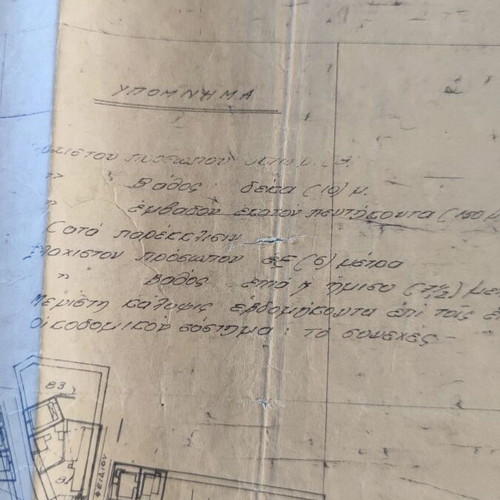 ΥΠΟΜΝΗΜΑ
προσώπου
" Βάθος : δέκα (10) μ.
" εμβαδόν εκατόν πεντήκοντα (150 μ
Κατά παρέκκλισιν
Ελάχιστον πρόσωπον έξ (6) μέτρα
" Βάθος επτά ήμισυ (7 1/2) με
Μεγίστη κάλυψις εβδομήκοντα επί τοις ε
Οικοδομικόν σύστημα : το συνεχές
83
ΦΕΙΔΙΟΥ